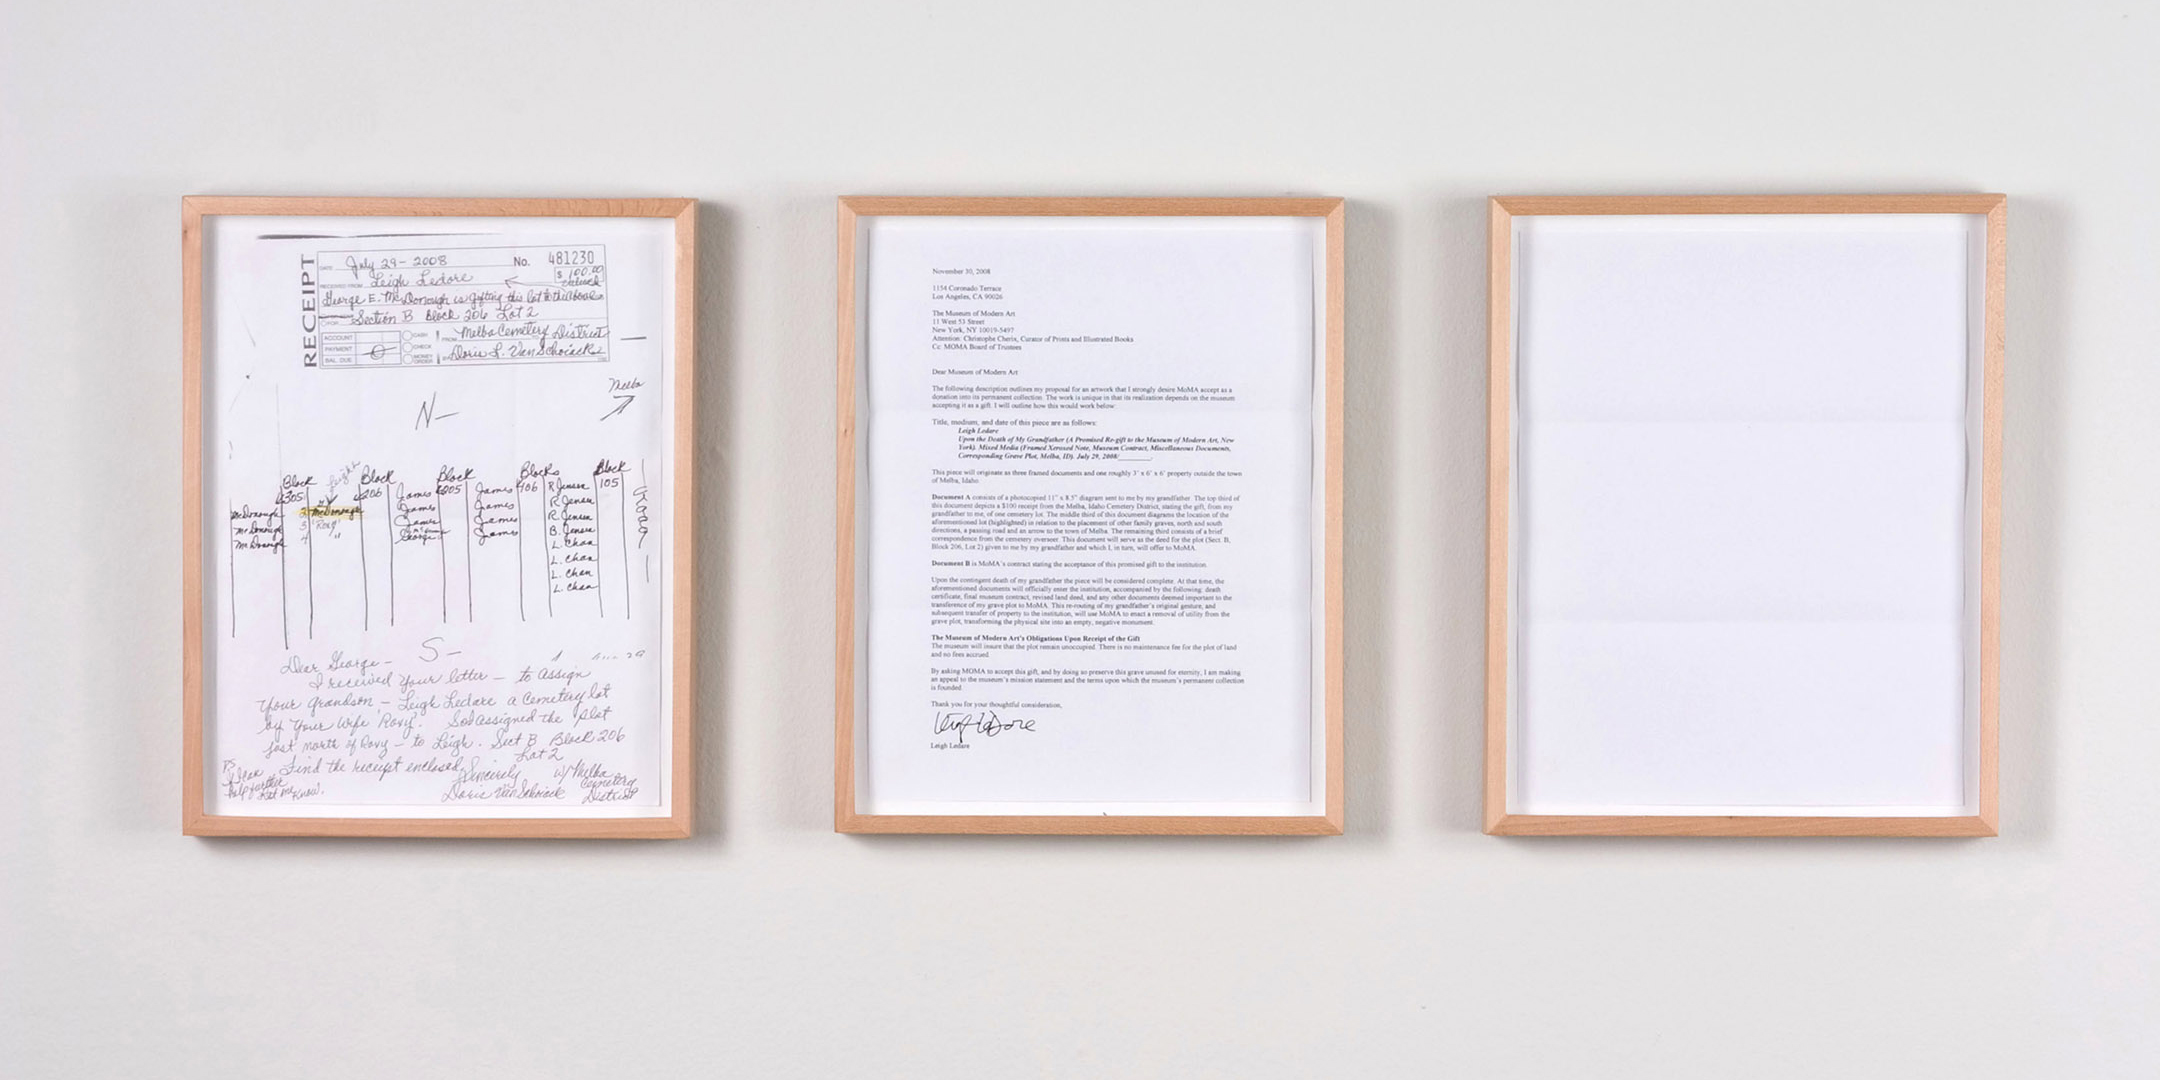 RECEIPT
DATE July 29- 2008 No. 481230
RECEIVED FROM Leigh Ledare $100.00
George E. McDonough is gifting this lot to the above
FOR Section B Block 206 Lot 2
ACCOUNT CASH
PAYMENT 0 CHECK FROM Melba Cemetery District
BAL. DUE MONEY ORDER BY Doris L. VanSchoiack
Melba
N-
Leigh
Block 305 Block 206 Block Block 406 Block 105
McDonough 2 McDonough James James R Jensen
McDonough 3 "Roxy" James James R Jensen
McDonough 4 " James James R Jensen
George James B. Jensen
L. Chan
L. Chan
L. Chan
L. Chan
Road
S-
Dear George-
I received your letter – to assign
your grandson – Leigh Ledare a Cemetery lot
by your wife 'Roxy'. So I assigned the plot
just north of Roxy – to Leigh. Sect B Block 206
Lot 2
Find the receipt enclosed.
Sincerely
Doris VanSchoiack
w/ Melba
Cemetery
District
PS
I can
help further
let me know.
November 30, 2008
1154 Coronado Terrace
Los Angeles, CA 90026
The Museum of Modern Art
11 West 53 Street
New York, NY 10019-5497
Attention: Christophe Cherix, Curator of Prints and Illustrated Books
Cc: MOMA Board of Trustees
Dear Museum of Modern Art
The following description outlines my proposal for an artwork that I strongly desire MoMA accept as a
donation into its permanent collection. The work is unique in that its realization depends on the museum
accepting it as a gift. I will outline how this would work below:
Title, medium, and date of this piece are as follows:
Leigh Ledare
Upon the Death of My Grandfather (A Promised Re-gift to the Museum of Modern Art, New
York). Mixed Media (Framed Xeroxed Note, Museum Contract, Miscellaneous Documents,
Corresponding Grave Plot, Melba, ID). July 29, 2008/________.
This piece will originate as three framed documents and one roughly 3' x 6' x 6' property outside the town
of Melba, Idaho.
Document A consists of a photocopied 11" x 8.5" diagram sent to me by my grandfather. The top third of
this document depicts a $100 receipt from the Melba, Idaho Cemetery District, stating the gift, from my
grandfather to me, of one cemetery lot. The middle third of this document diagrams the location of the
aforementioned lot (highlighted) in relation to the placement of other family graves, north and south
directions, a passing road and an arrow to the town of Melba. The remaining third consists of a brief
correspondence from the cemetery overseer. This document will serve as the deed for the plot (Sect. B,
Block 206, Lot 2) given to me by my grandfather and which I, in turn, will offer to MoMA.
Document B is MoMA's contract stating the acceptance of this promised gift to the institution.
Upon the contingent death of my grandfather the piece will be considered complete. At that time, the
aforementioned documents will officially enter the institution, accompanied by the following: death
certificate, final museum contract, revised land deed, and any other documents deemed important to the
transference of my grave plot to MoMA. This re-routing of my grandfather's original gesture, and
subsequent transfer of property to the institution, will use MoMA to enact a removal of utility from the
grave plot, transforming the physical site into an empty, negative monument.
The Museum of Modern Art's Obligations Upon Receipt of the Gift
The museum will insure that the plot remain unoccupied. There is no maintenance fee for the plot of land
and no fees accrued.
By asking MOMA to accept this gift, and by doing so preserve this grave unused for eternity, I am making
an appeal to the museum's mission statement and the terms upon which the museum's permanent collection
is founded.
Thank you for your thoughtful consideration,
Leigh Ledare
Leigh Ledare